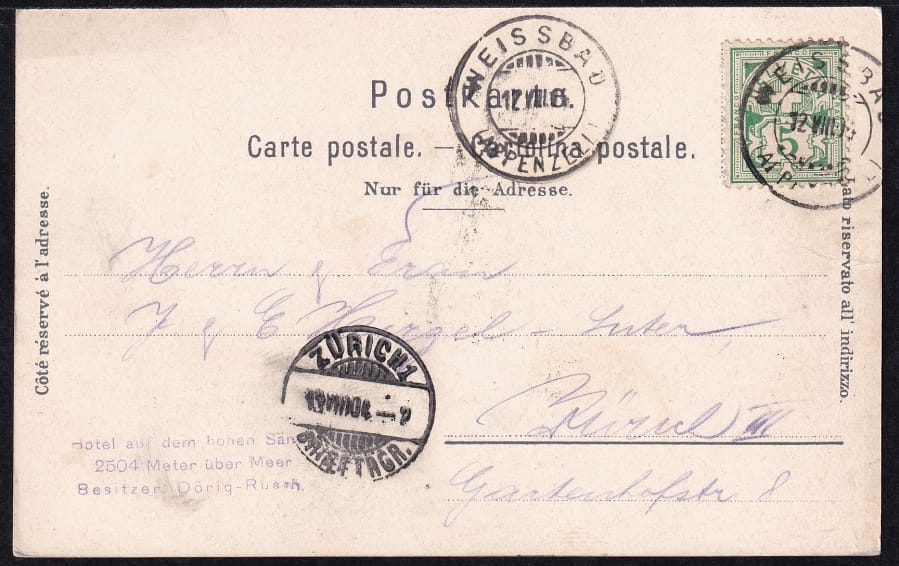 WEISSBAD
12.VIII.04.
(APPENZELL)
WEISSBAD
12.VIII.04
(APPENZELL)
5
Postkarte.
Carte postale. — Cartolina postale.
Nur für die Adresse.
Côté réservé à l'adresse.
Lato riservato all' indirizzo.
Herrn & Frau
J & E Hirzel - Suter
ZÜRICH 1
13.VIII.04. – 9
BRIEFTRGR.
Zürich III
Gartenhofstr 8
Hotel auf dem hohen Sän
2504 Meter über Meer
Besitzer: Dörig-Rusch.